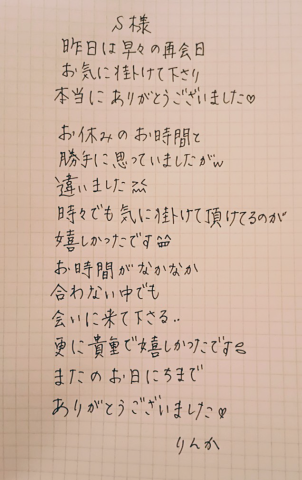 S様
昨日は早々の再会日
お気に掛けて下さり
本当にありがとうございました♡
お休みのお時間と
勝手に思っていましたがw
違いました💦
時々でも気に掛けて頂けてるのが
嬉しかったです😄
お時間がなかなか
合わない中でも
会いに来て下さる..
更に貴重で嬉しかったです
またのお日にちまで
ありがとうございました♡
りんか